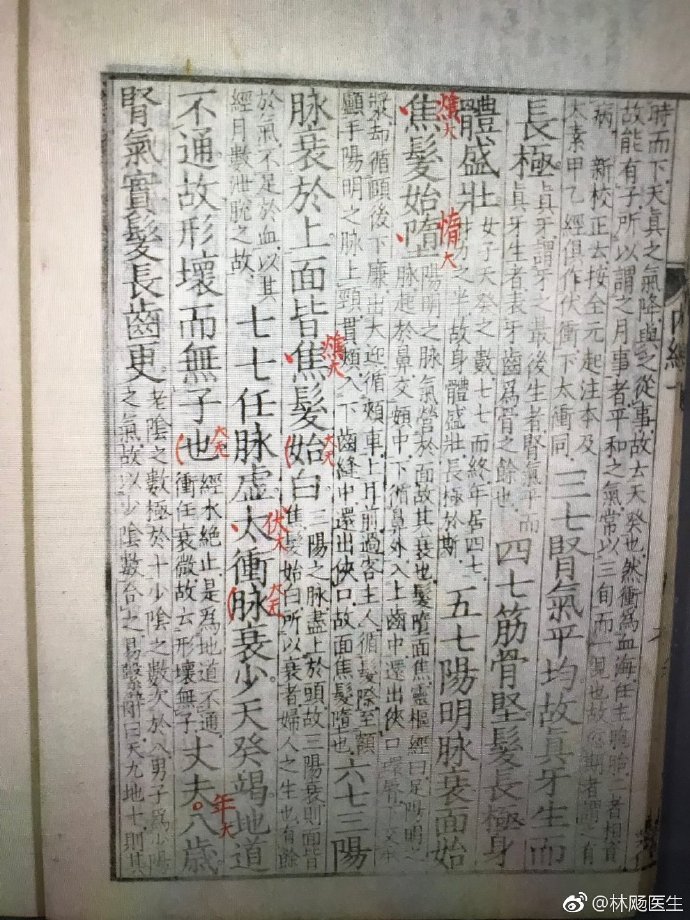 時而下天真之氣降與之從事故去天癸也然衝為血海任主胞胎二者相資
故能有子所以謂之月事者平和之氣常以三旬而一見也故愆期者謂之有
病 新校正云按全元起注本及
太素甲乙經俱作伏衝下太衝同
三七腎氣平均故真牙生而
長極
真牙謂牙之最後生者腎氣平而
真牙生者表牙齒為骨之餘也
四七筋骨堅髮長極身
體盛壯
女子天癸之數七七而終年居四七
材力之半故身體盛壯長極於斯
五七陽明脉衰面始
焦髮始墮
燋大
惰大
陽明之脉氣營於面故其衰也髮墮面焦靈樞經曰足陽明之
脉起於鼻交頞中下循鼻外入上齒中還出俠口環脣下交承
漿却循頤後下廉出大迎循頰車上耳前過客主人循髮際至額
顱手陽明之脉上頸貫頰入下齒縫中還出俠口故面焦髮墮也
六七三陽
脉衰於上面皆焦髮始白
燋大
三陽之脉盡上於頭故三陽衰則面皆
焦髮始白所以衰者婦人之生也有餘
於氣不足於血以其
經月數泄脫之故
七七任脉虛太衝脉衰少天癸竭地道
伏大
不通故形壞而無子也
經水絕止是為地道不通
衝任衰微故云形壞無子
丈夫八歲
年大
腎氣實髮長齒更
老陰之數極於十少陰之數次於八男子為少陽
之氣故以少陰數合之易繫辭曰天九地十則其
@林飏医生